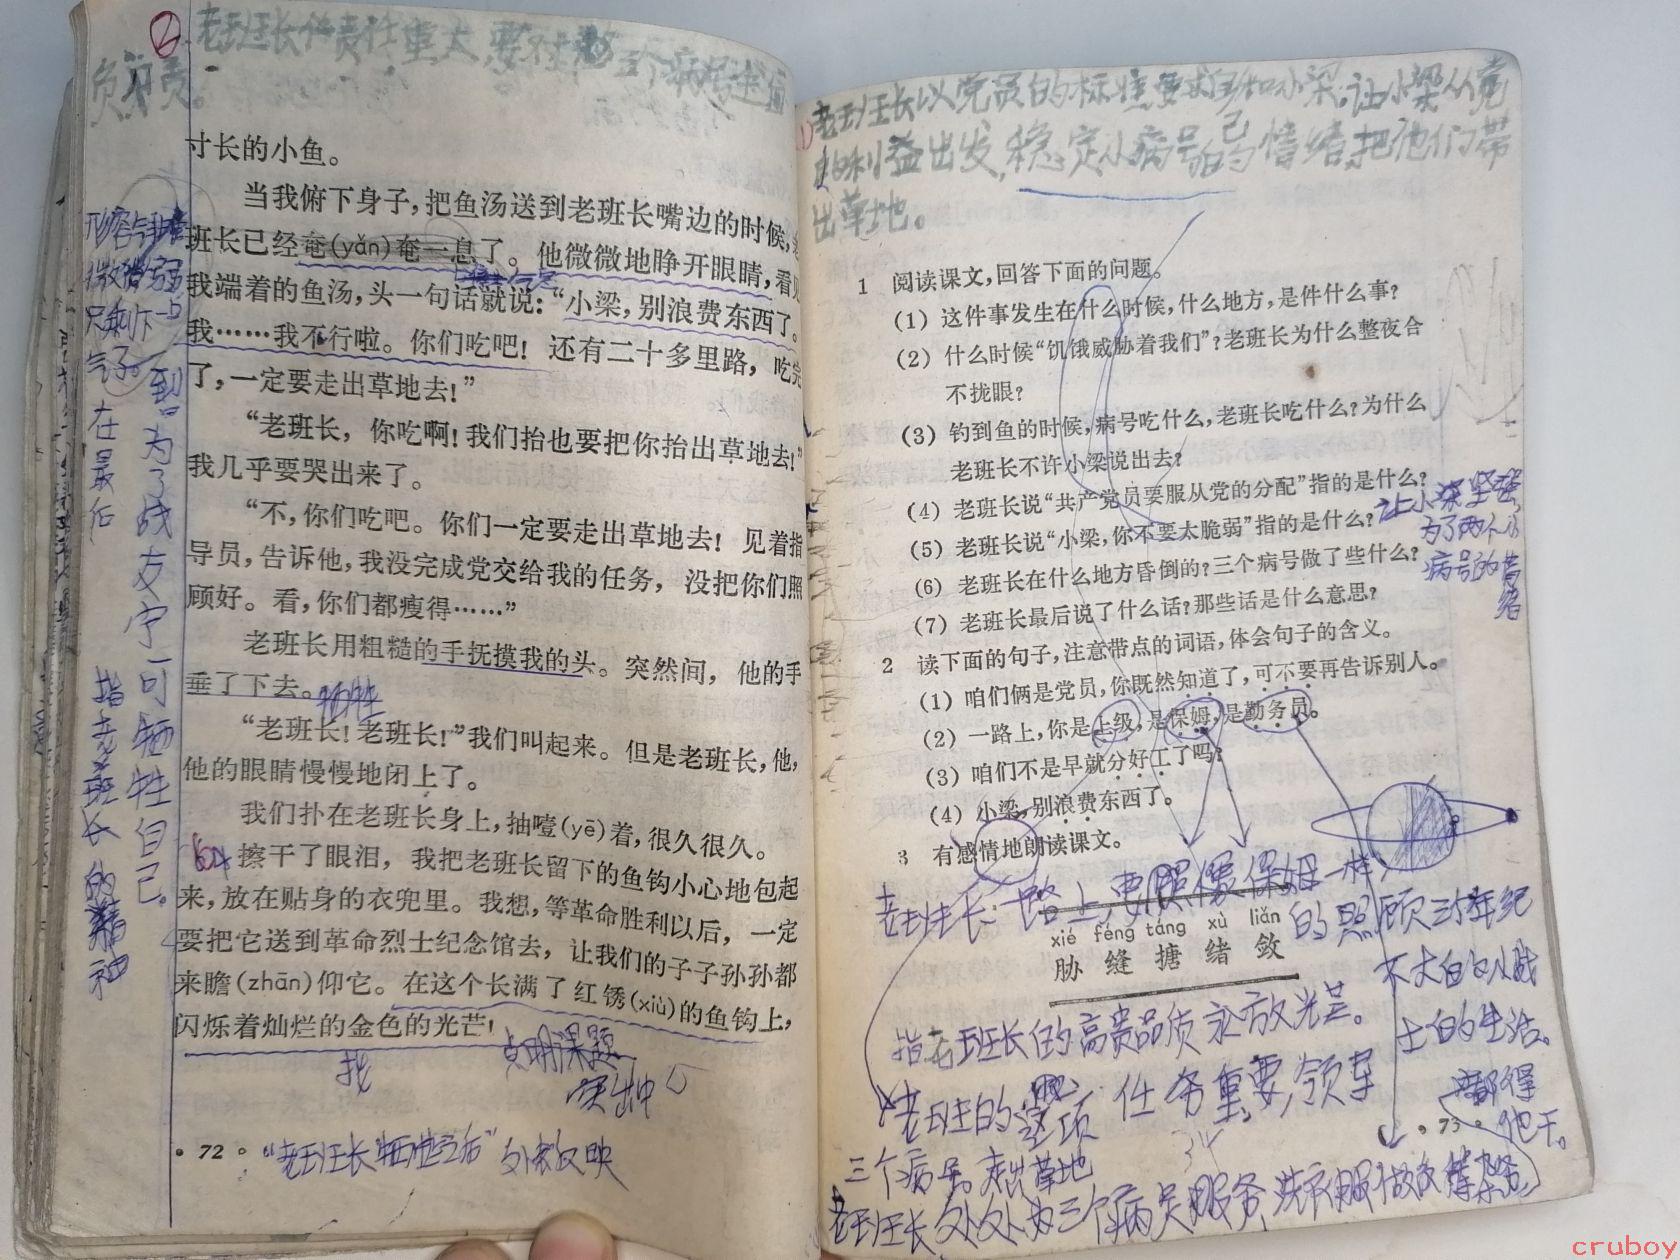 ② 老班长任责任重大,要不
负责。
寸长的小鱼。
当我俯下身子,把鱼汤送到老班长嘴边的时候,
班长已经奄(yǎn)奄一息了。他微微地睁开眼睛,看
我端着的鱼汤,头一句话就说:“小梁,别浪费东西了。
我……我不行啦。你们吃吧! 还有二十多里路,吃完
了,一定要走出草地去!”
“老班长,你吃啊! 我们抬也要把你抬出草地去!”
我几乎要哭出来了。
“不,你们吃吧。你们一定要走出草地去! 见着指
导员,告诉他,我没完成党交给我的任务,没把你们照
顾好。看,你们都瘦得……”
老班长用粗糙的手抚摸我的头。突然间,他的手
垂了下去。
牺牲
“老班长! 老班长!”我们叫起来。但是老班长,他,
他的眼睛慢慢地闭上了。
我们扑在老班长身上,抽噎(yē)着,很久很久。
擦干了眼泪,我把老班长留下的鱼钩小心地包起
来,放在贴身的衣兜里。我想,等革命胜利以后,一定
要把它送到革命烈士纪念馆去,让我们的子子孙孙都
来瞻(zhān)仰它。在这个长满了红锈(xiù)的鱼钩上,
闪烁着灿烂的金色的光芒!
点明课题
突出中心
• 72 •
“老班长牺牲之后”
形容气
微弱
只剩下一口
气了。
在最后
一到为了战友宁可牺牲自己。
指老班长的精神
老班长以党员的标准要求自己和小梁,让小梁从党
的利益出发,稳定小病号的情绪,把他们带
出草地。
1 阅读课文,回答下面的问题。
(1) 这件事发生在什么时候,什么地方,是件什么事?
(2) 什么时候“饥饿威胁着我们”?老班长为什么整夜合
不拢眼?
(3) 钓到鱼的时候,病号吃什么,老班长吃什么?为什么
老班长不许小梁说出去?
(4) 老班长说“共产党员要服从党的分配”指的是什么?
(5) 老班长说“小梁,你不要太脆弱”指的是什么?
让小梁坚强,
为了两个小
病号的情绪
(6) 老班长在什么地方昏倒的?三个病号做了些什么?
(7) 老班长最后说了什么话?那些话是什么意思?
2 读下面的句子,注意带点的词语,体会句子的含义。
(1) 咱们俩是党员,你既然知道了,可不要再告诉别人。
(2) 一路上,你是上级,是保姆,是勤务员。
(3) 咱们不是早就分好工了吗?
(4) 小梁,别浪费东西了。
3 有感情地朗读课文。
老班长一路上,要照像保姆一样
的照顾三个年纪
不大的小战
士的生活。
xié féng táng xù liǎn
胁 缝 搪 绪 敛
指老班长的高贵品质永放光芒。
老班的这项任务重要,领导
三个病号走出草地
都得
他干。
• 73 •
老班长处处为三个病员服务,洗衣服做饭等杂务
cruboy